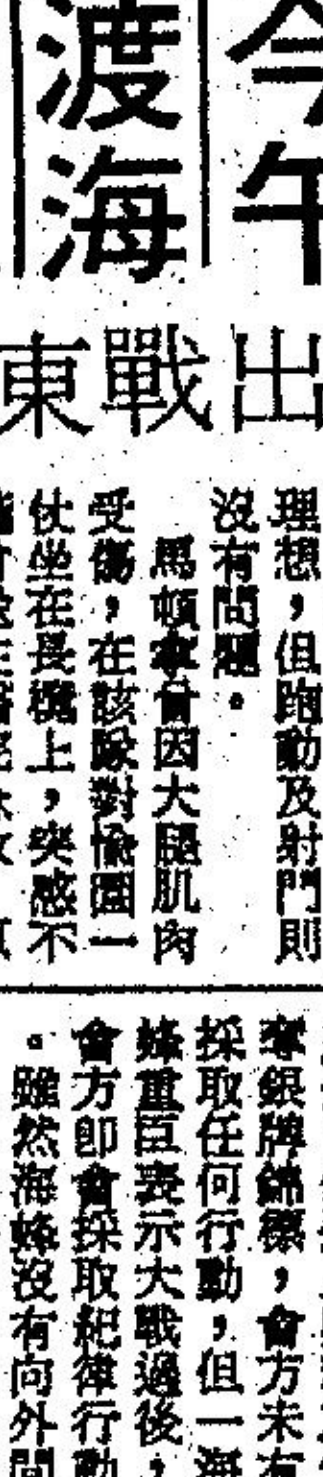 今午
渡海
出戰東
理想，但跑動及射門則
沒有問題。
馬頓拿曾因大腿肌肉
受傷，在該隊對愉園一
仗坐在長櫈上，突感不
奪銀牌錦標，會方未有
採取任何行動，但一海
蜂重臣表示大戰過後，
會方即會採取紀律行動
。雖然海蜂沒有向外間